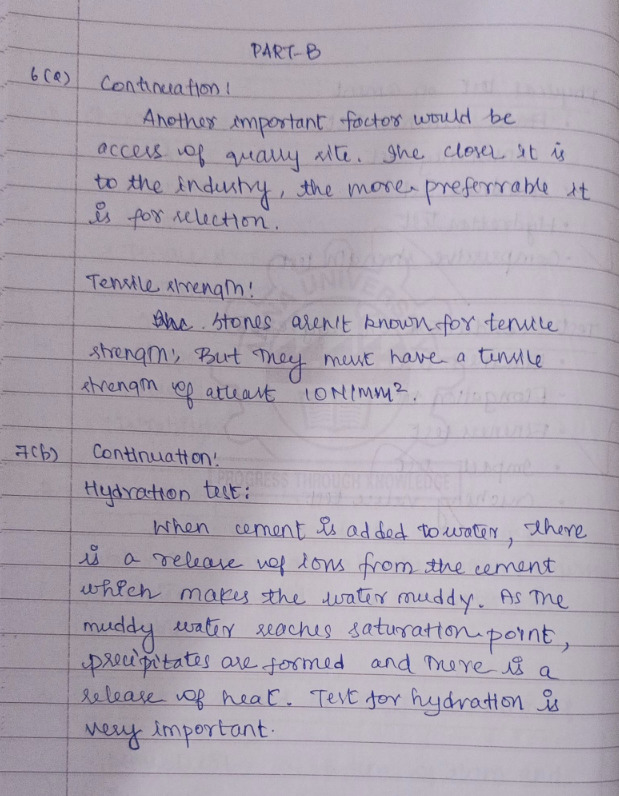 PART-B
6(a) Continuation!
Another important factor would be
access of quarry site. The closer it is
to the industry, the more preferrable it
is for selection.
Tensile strength!
Stones aren't known for tensile
strength, But they must have a tensile
strength of atleast 10N/mm².
7(b) Continuation!
Hydration test:
When cement is added to water, there
is a release of ions from the cement
which makes the water muddy. As the
muddy water reaches saturation point,
precipitates are formed and there is a
release of heat. Test for hydration is
very important.
PROGRESS THROUGH KNOWLEDGE